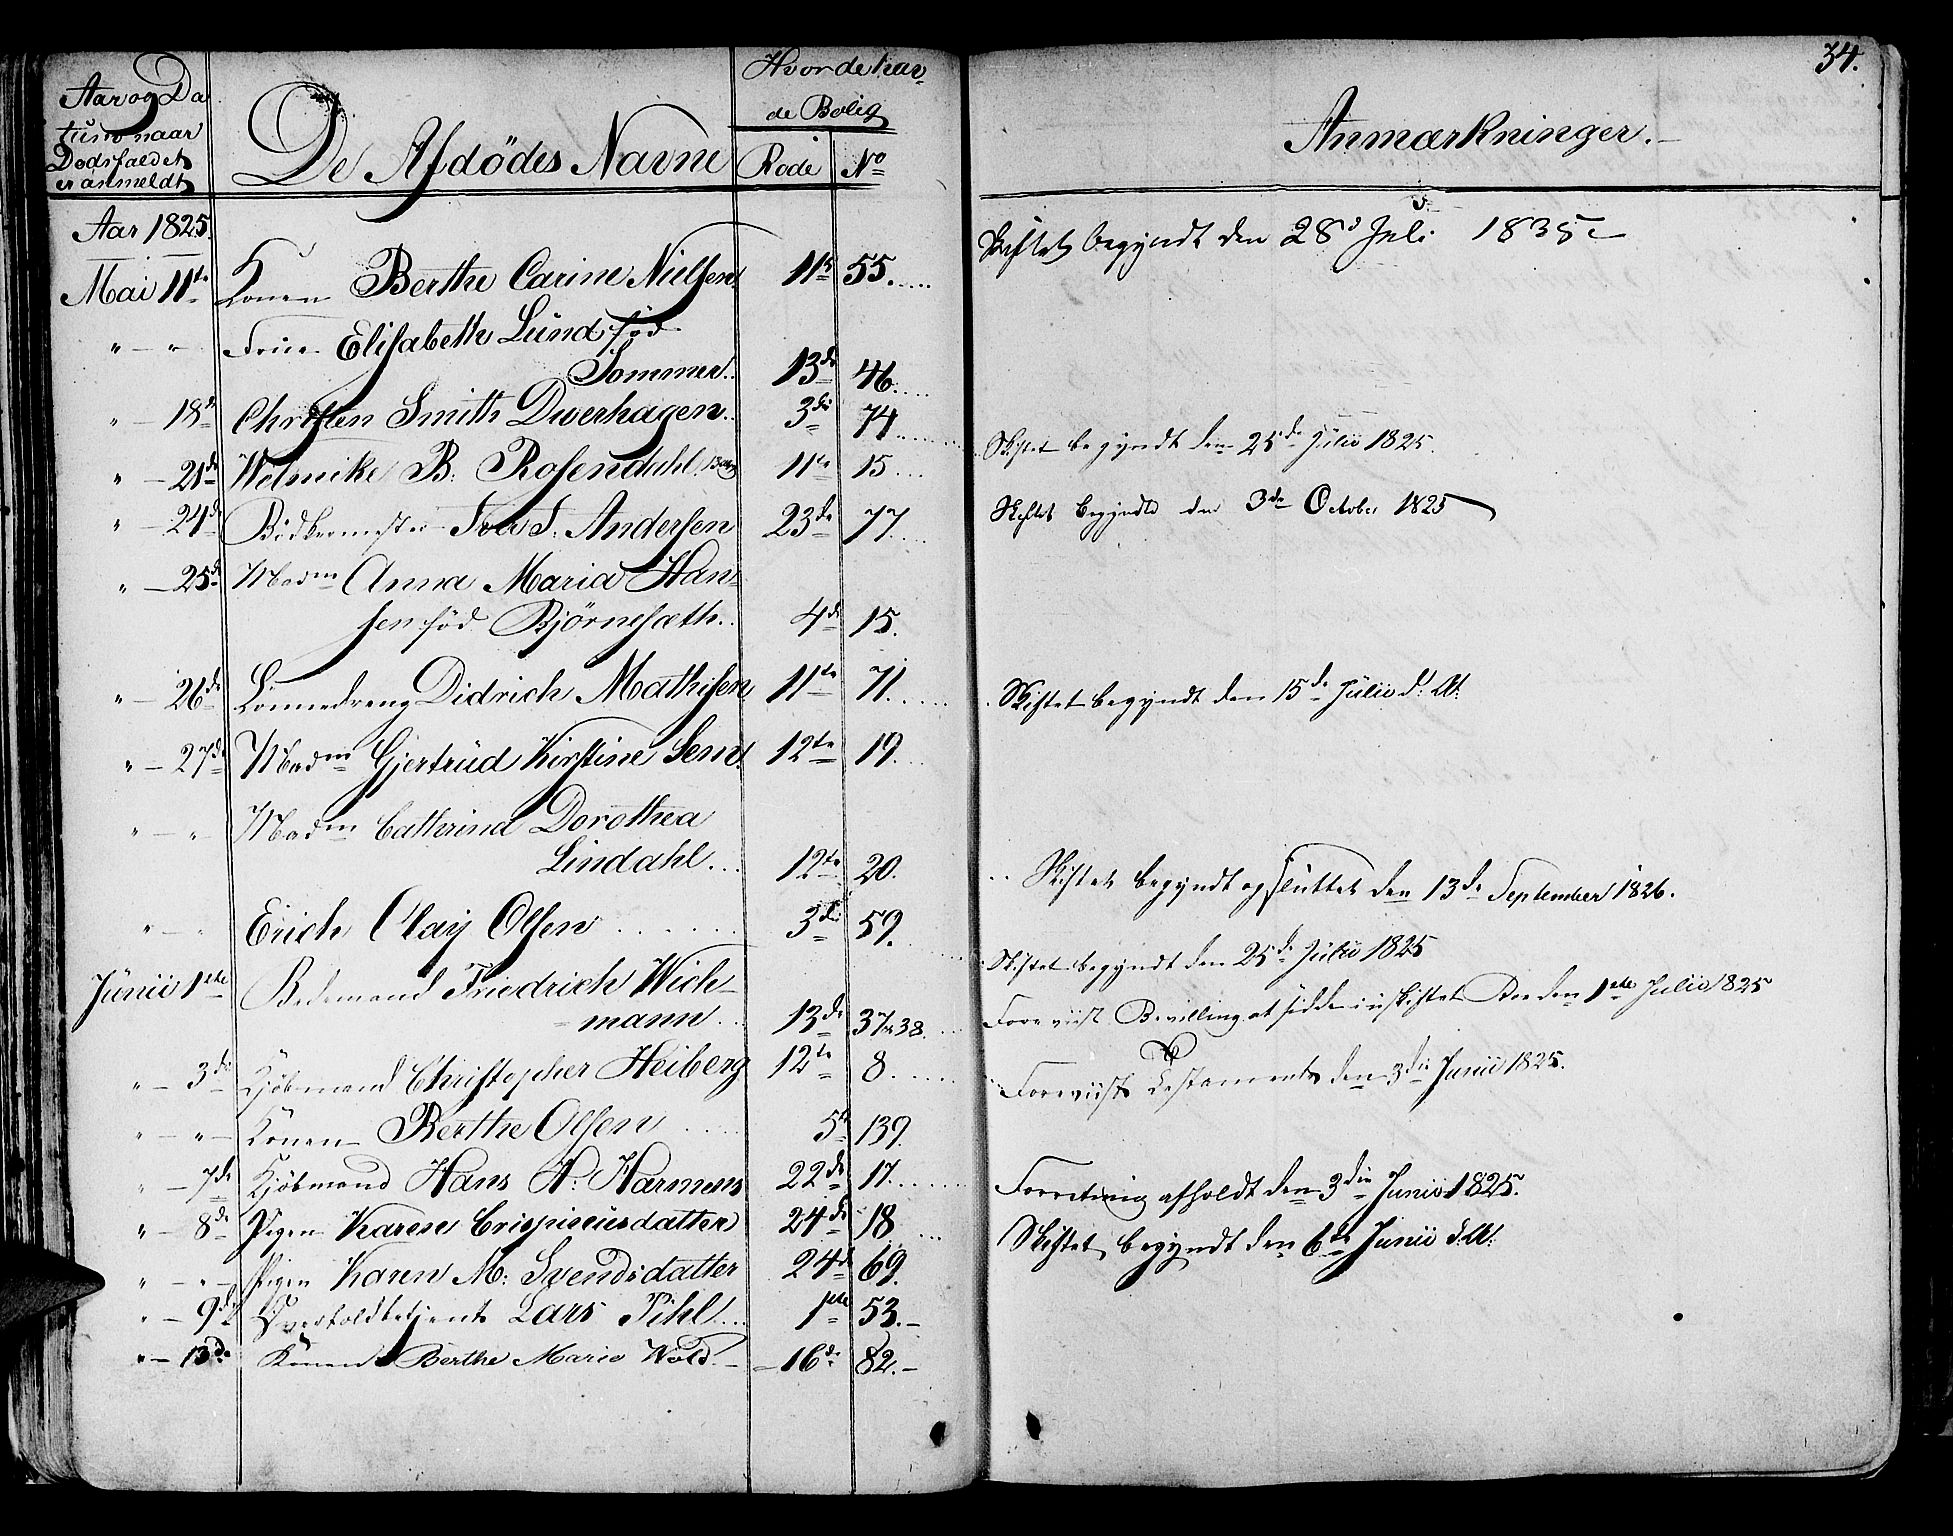 34.
Aar og Da
tum naar
Dødsfaldet
er anmeldt
De Afdødes Navne
Hvor de hav
de Bolig
Rode No
Anmærkninger.
Aar 1825.
Mai 11te Konen Berthe Carine Nielsen 11te 55.....
Skiftet begyndt den 28d Juli 1835
" — " Frue Elisabeth Lund fød
Sommer.. 13de 46.....
" — 18de Christen Smith Dwerhagen.. 3die 74.......
Skiftet begyndt den 25de Julii 1825.
" — 21de Welmike B: Rosendahl 11te 15....
" — 24de Bødkermester Iver T. Andersen 23de 77.....
Skiftet begyndte den 3de October 1825
" — 25de Madm Anna Maria Han-
sen fød Bjørnesæth.. 4de 15.
" — 26de Lønnedreng Didrich Mathisen 11te 71......
Skiftet begyndt den 15de Julii d: A:
" — 27de Madm Gjertrüd Kirstine Sem 12te 19...
" — " Madm Cathrina Dorothea
Lindahl... 12te 20.
Skiftet begyndt og sluttet den 13de September 1826.
" — " Erich Olay Olsen ....... 3die 59.
Skiftet begyndt den 25de Julii 1825
Junii 1ste Bedemand Friedrich Wich-
mann... 13de 37 & 38....
Foreviist Bevilling at sidde i uskiftet Boe den 1ste Julii 1825
" — 3die Kjøbmand Christopher Heiberg 12te 8......
Foreviist Testament den 3die Junii 1825.
" — " — Konen Berthe Olsen ..... 5te 139.
" — 7de Kjøbmand Hans H: Harmens 22de 17.......
Forretning afholdt den 3die Junii 1825.
" — 8de Pigen Karen Crispiniusdatter 24de 18 ...
Skiftet begyndt den 6te Junii d: A:
" — " — Pigen Karen M: Svendsdatter 24de 69.
" — 9de Overtoldbetjent Lars Pihl.... 1ste 53.—
" — 13de Konen Berthe Marie Wold.— 16de 82.—